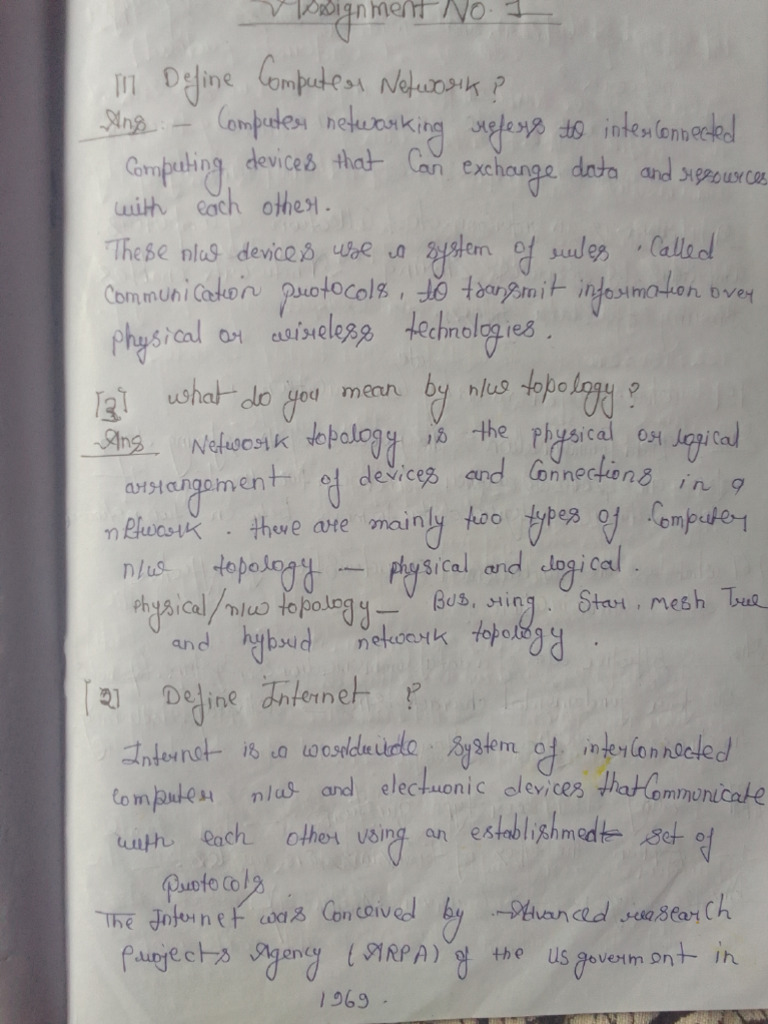 Assignment No. 1
[1] Define Computer Network?
Ans :- Computer networking refers to interconnected
Computing devices that Can exchange data and resources
with each other.
These n/w devices use a system of rules . Called
Communication protocols, to transmit information over
physical or wireless technologies.
[3] what do you mean by n/w topology?
Ans Network topology is the physical or logical
arrangement of devices and Connections in a
network. there are mainly two types of Computer
n/w topology — physical and logical.
physical/n/w topology — Bus, ring. Star, mesh Tree
and hybrid network topology.
[2] Define Internet ?
Internet is a worldwide system of interConnected
Computer n/w and electronic devices that Communicate
with each other using an establishmedt set of
protocols
The Internet was Conceived by Advanced reasearch
projects Agency (ARPA) of the US goverment in
1969.